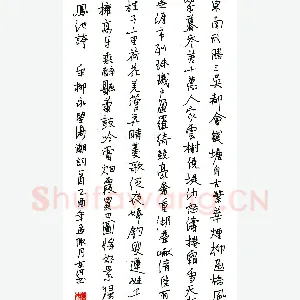 東南形勝三吳都會錢塘自古繁華煙柳畫橋風
翠幕參差十萬人家雲樹繞堤沙怒濤捲霜雪天
涯市列珠璣戶盈羅綺競豪奢重湖疊巘清佳有
桂子十里荷花羌管弄晴菱歌泛夜嬉嬉釣叟蓮娃千
擁高牙乘醉聽簫鼓吟賞煙霞異日圖將好景歸
鳳池誇 宋柳永望海潮詞
Shufawang.CN